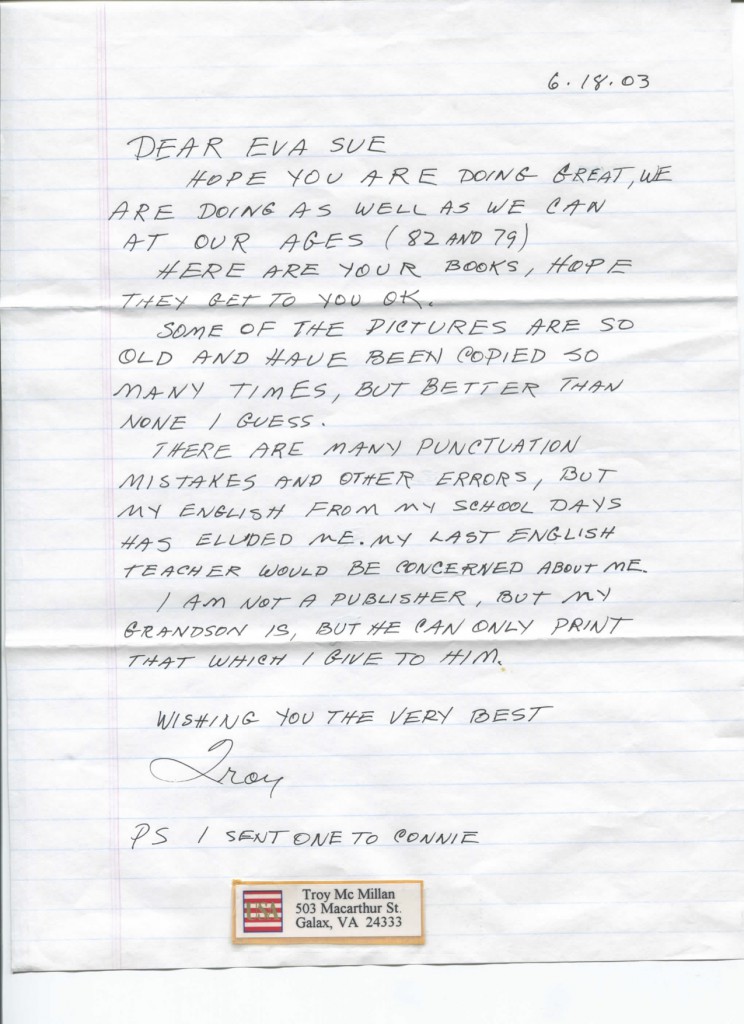 6.18.03
DEAR EVA SUE
HOPE YOU ARE DOING GREAT, WE
ARE DOING AS WELL AS WE CAN
AT OUR AGES (82 AND 79)
HERE ARE YOUR BOOKS, HOPE
THEY GET TO YOU OK.
SOME OF THE PICTURES ARE SO
OLD AND HAVE BEEN COPIED SO
MANY TIMES, BUT BETTER THAN
NONE I GUESS.
THERE ARE MANY PUNCTUATION
MISTAKES AND OTHER ERRORS, BUT
MY ENGLISH FROM MY SCHOOL DAYS
HAS ELUDED ME. MY LAST ENGLISH
TEACHER WOULD BE CONCERNED ABOUT ME.
I AM NOT A PUBLISHER, BUT MY
GRANDSON IS, BUT HE CAN ONLY PRINT
THAT WHICH I GIVE TO HIM.
WISHING YOU THE VERY BEST
Troy
PS I SENT ONE TO CONNIE
USA
Troy Mc Millan
503 Macarthur St.
Galax, VA 24333